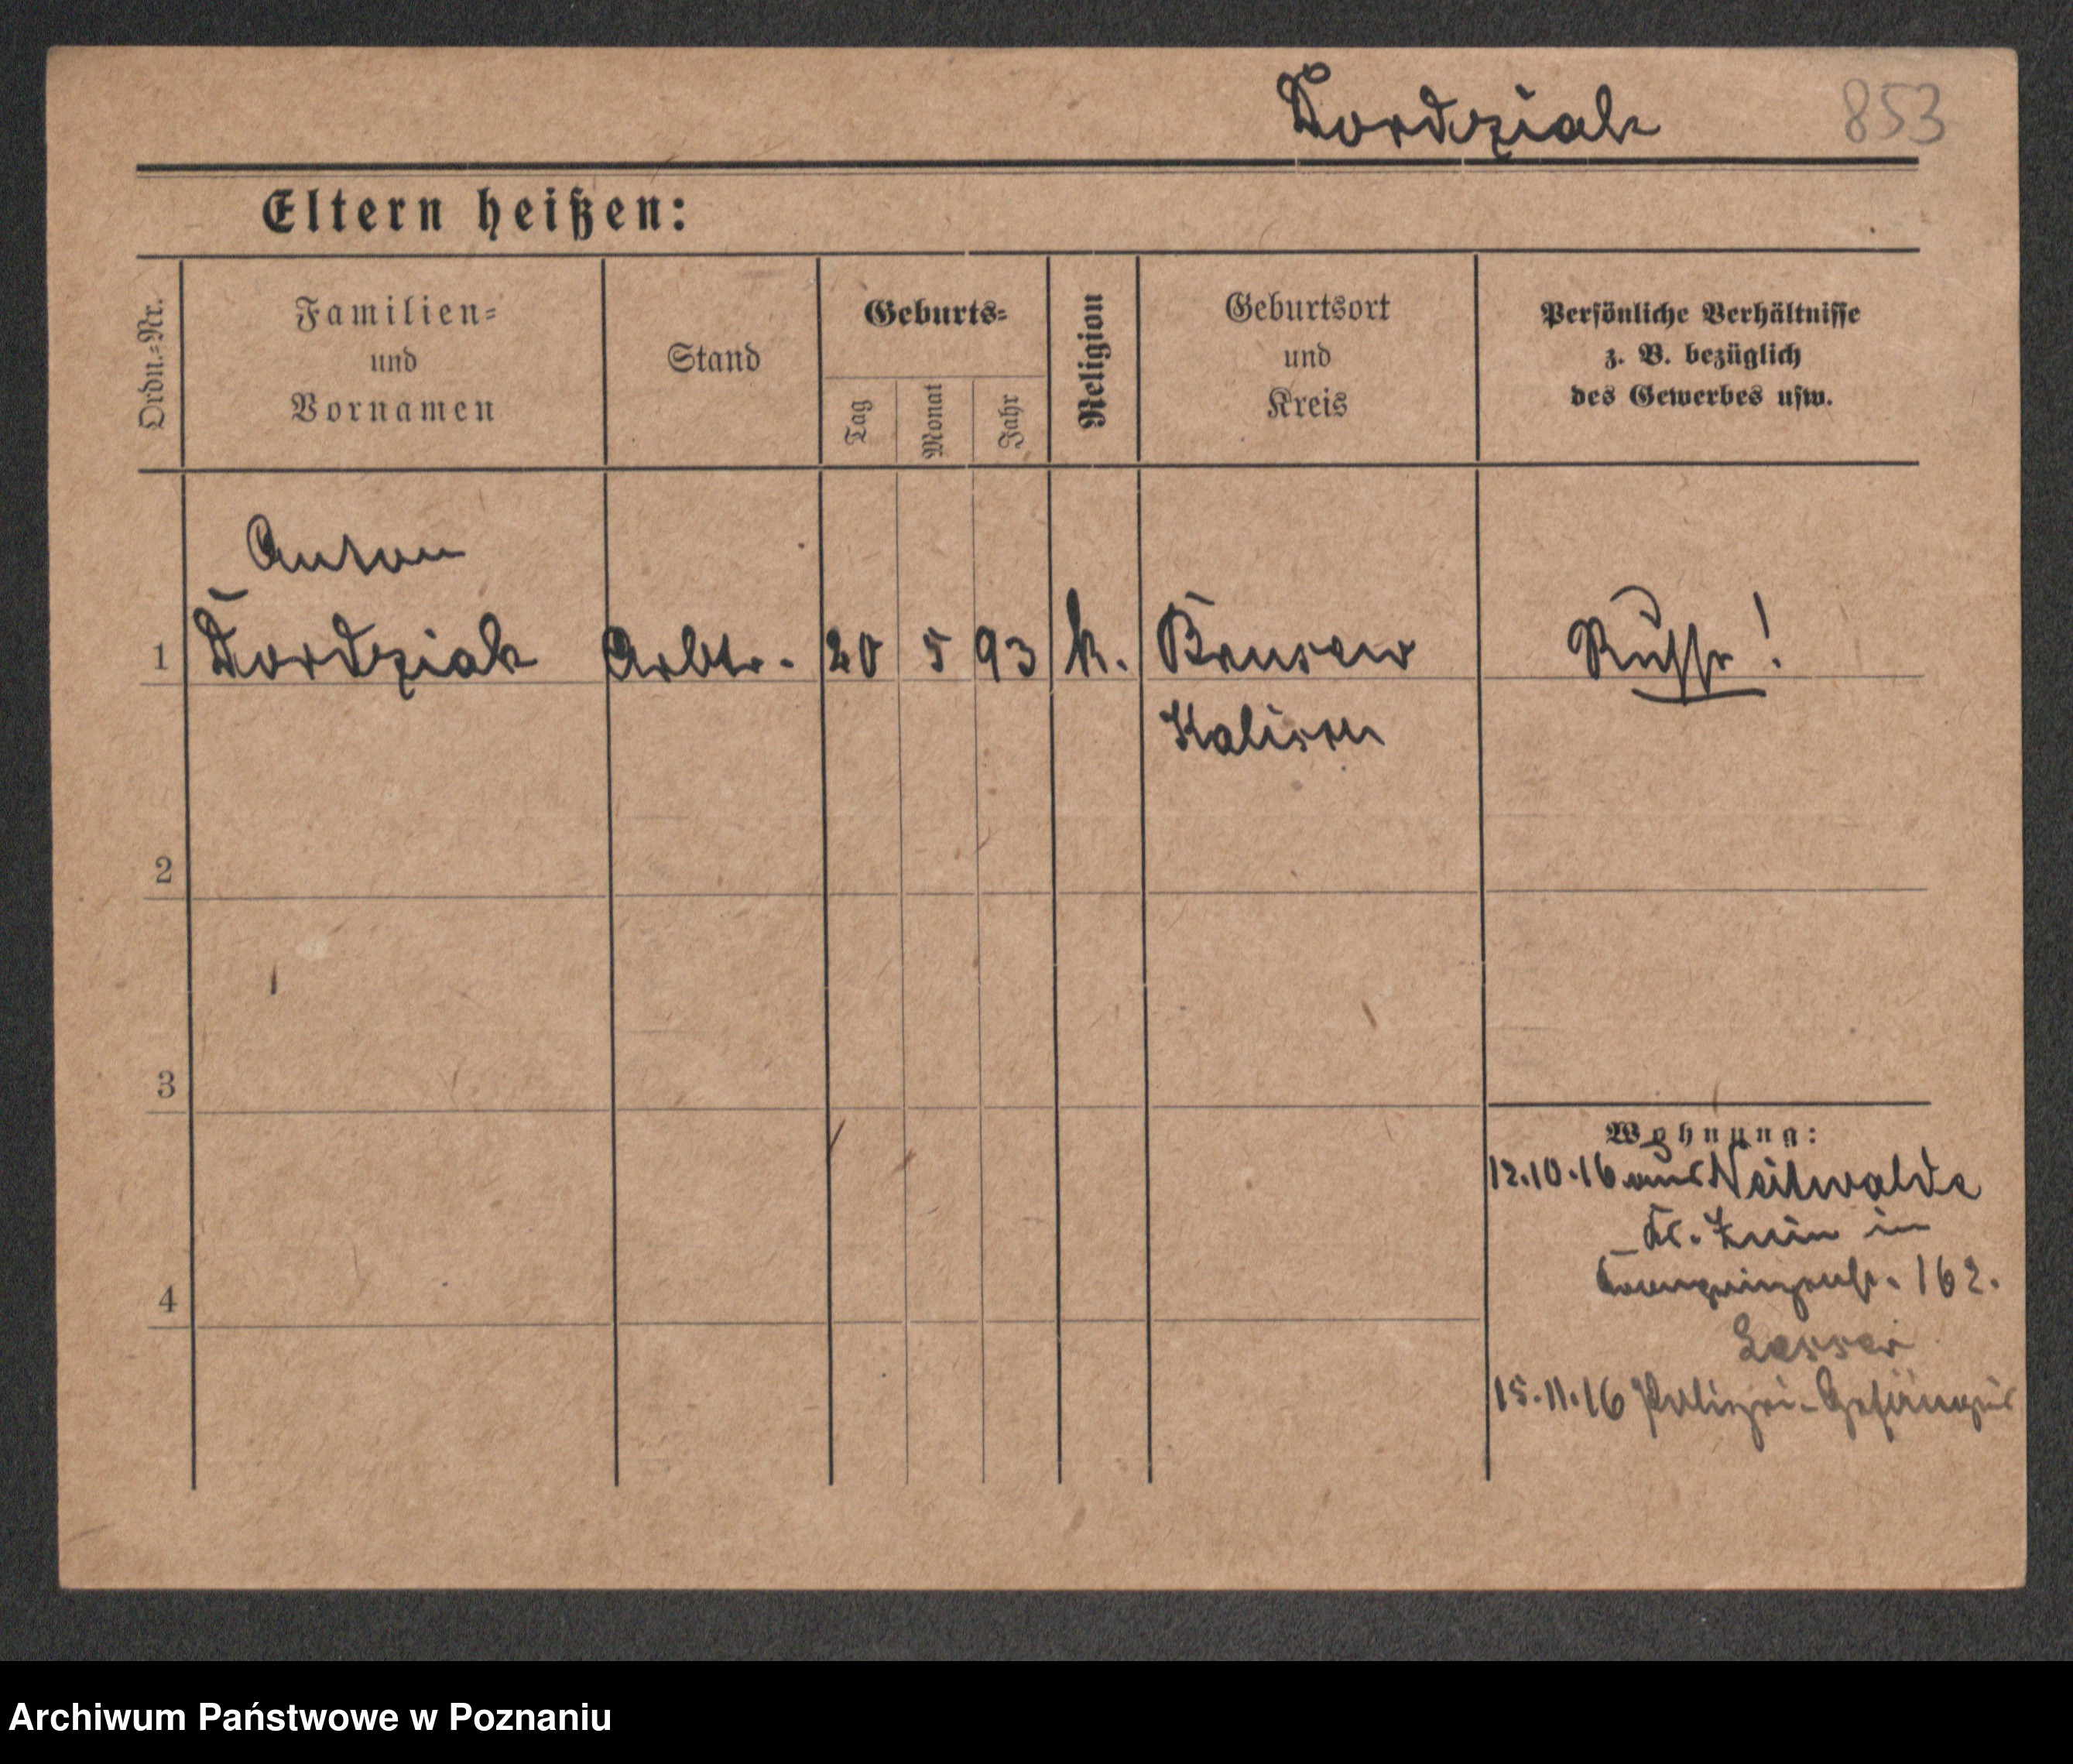 Kordziak 853
Eltern heißen:
Ordn.=Nr.
Familien=
und
Vornamen
Stand
Geburts=
Tag
Monat
Jahr
Religion
Geburtsort
und
Kreis
Persönliche Verhältnisse
z. B. bezüglich
des Gewerbes usw.
Anton
1 Kordziak Arbtr. 20 5 93 k. Russe!
Kalisch
2
3
4
Wohnung:
12.10.16 aus
Kr. Znin in
Kronprinzenstr. 162.
Lesser
15.11.16 Polizei-Gefängnis
Archiwum Państwowe w Poznaniu